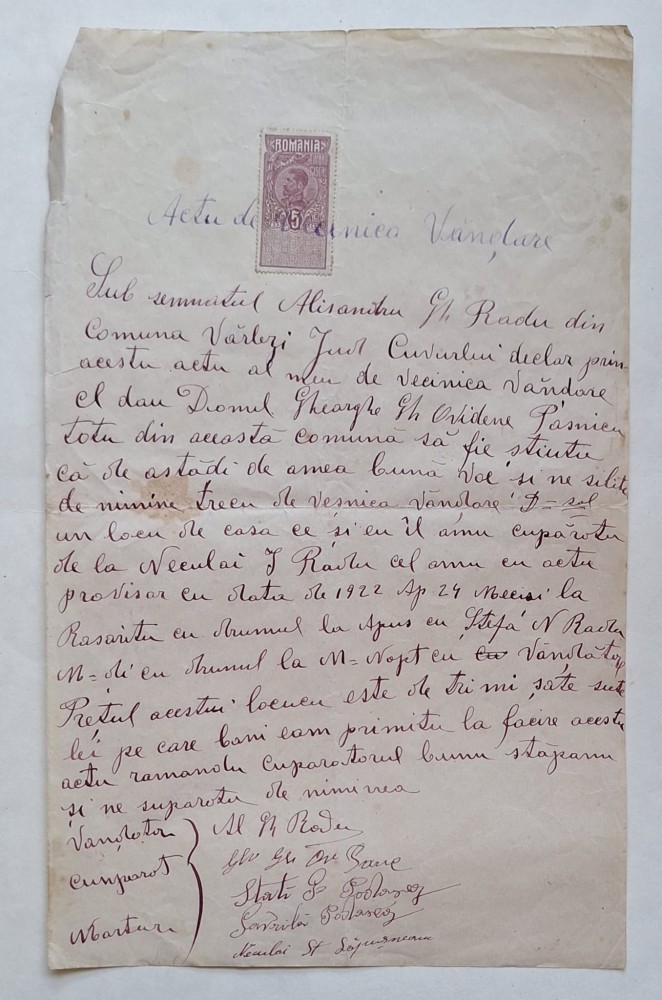 ROMANIA
5
Actu de Vecinica Vânḑare
Sub semnatul Alisandru Gh Radu din
Comuna Vârlezi Jud Cuvurlui declar prin
acestu actu al meu de vecinica vândare
cl dau Domul Gheorghe Gh Ovidene Pasnicu
totu din această comună să fie stiutu
că de astădi de amea bună voe și ne silitu
de nimine trecu de vesnica vândare D=sal
un locu de casa ce și eu îl amu cupărotu
de la Neculai J Radu cel amu cu actu
provisar cu data de 1922 Ap 24 Mecesi la
Rasaritu cu drumul la Apus cu Ștefa N Radu
M=di cu drumul la M=Nopt cu cu Vândător
Prețul acestui locucu este de tri mi șate sute
lei pe care bani eam primitu la facire acestu
actu ramandu cuparatorul bunu stăpanu
și ne suparotu de niminea
Vanḑotor Al Gh Radu
Cumparot Ghe Gh
Stati G
Marturi Gavrilă
Neculai St Lăpușneanu